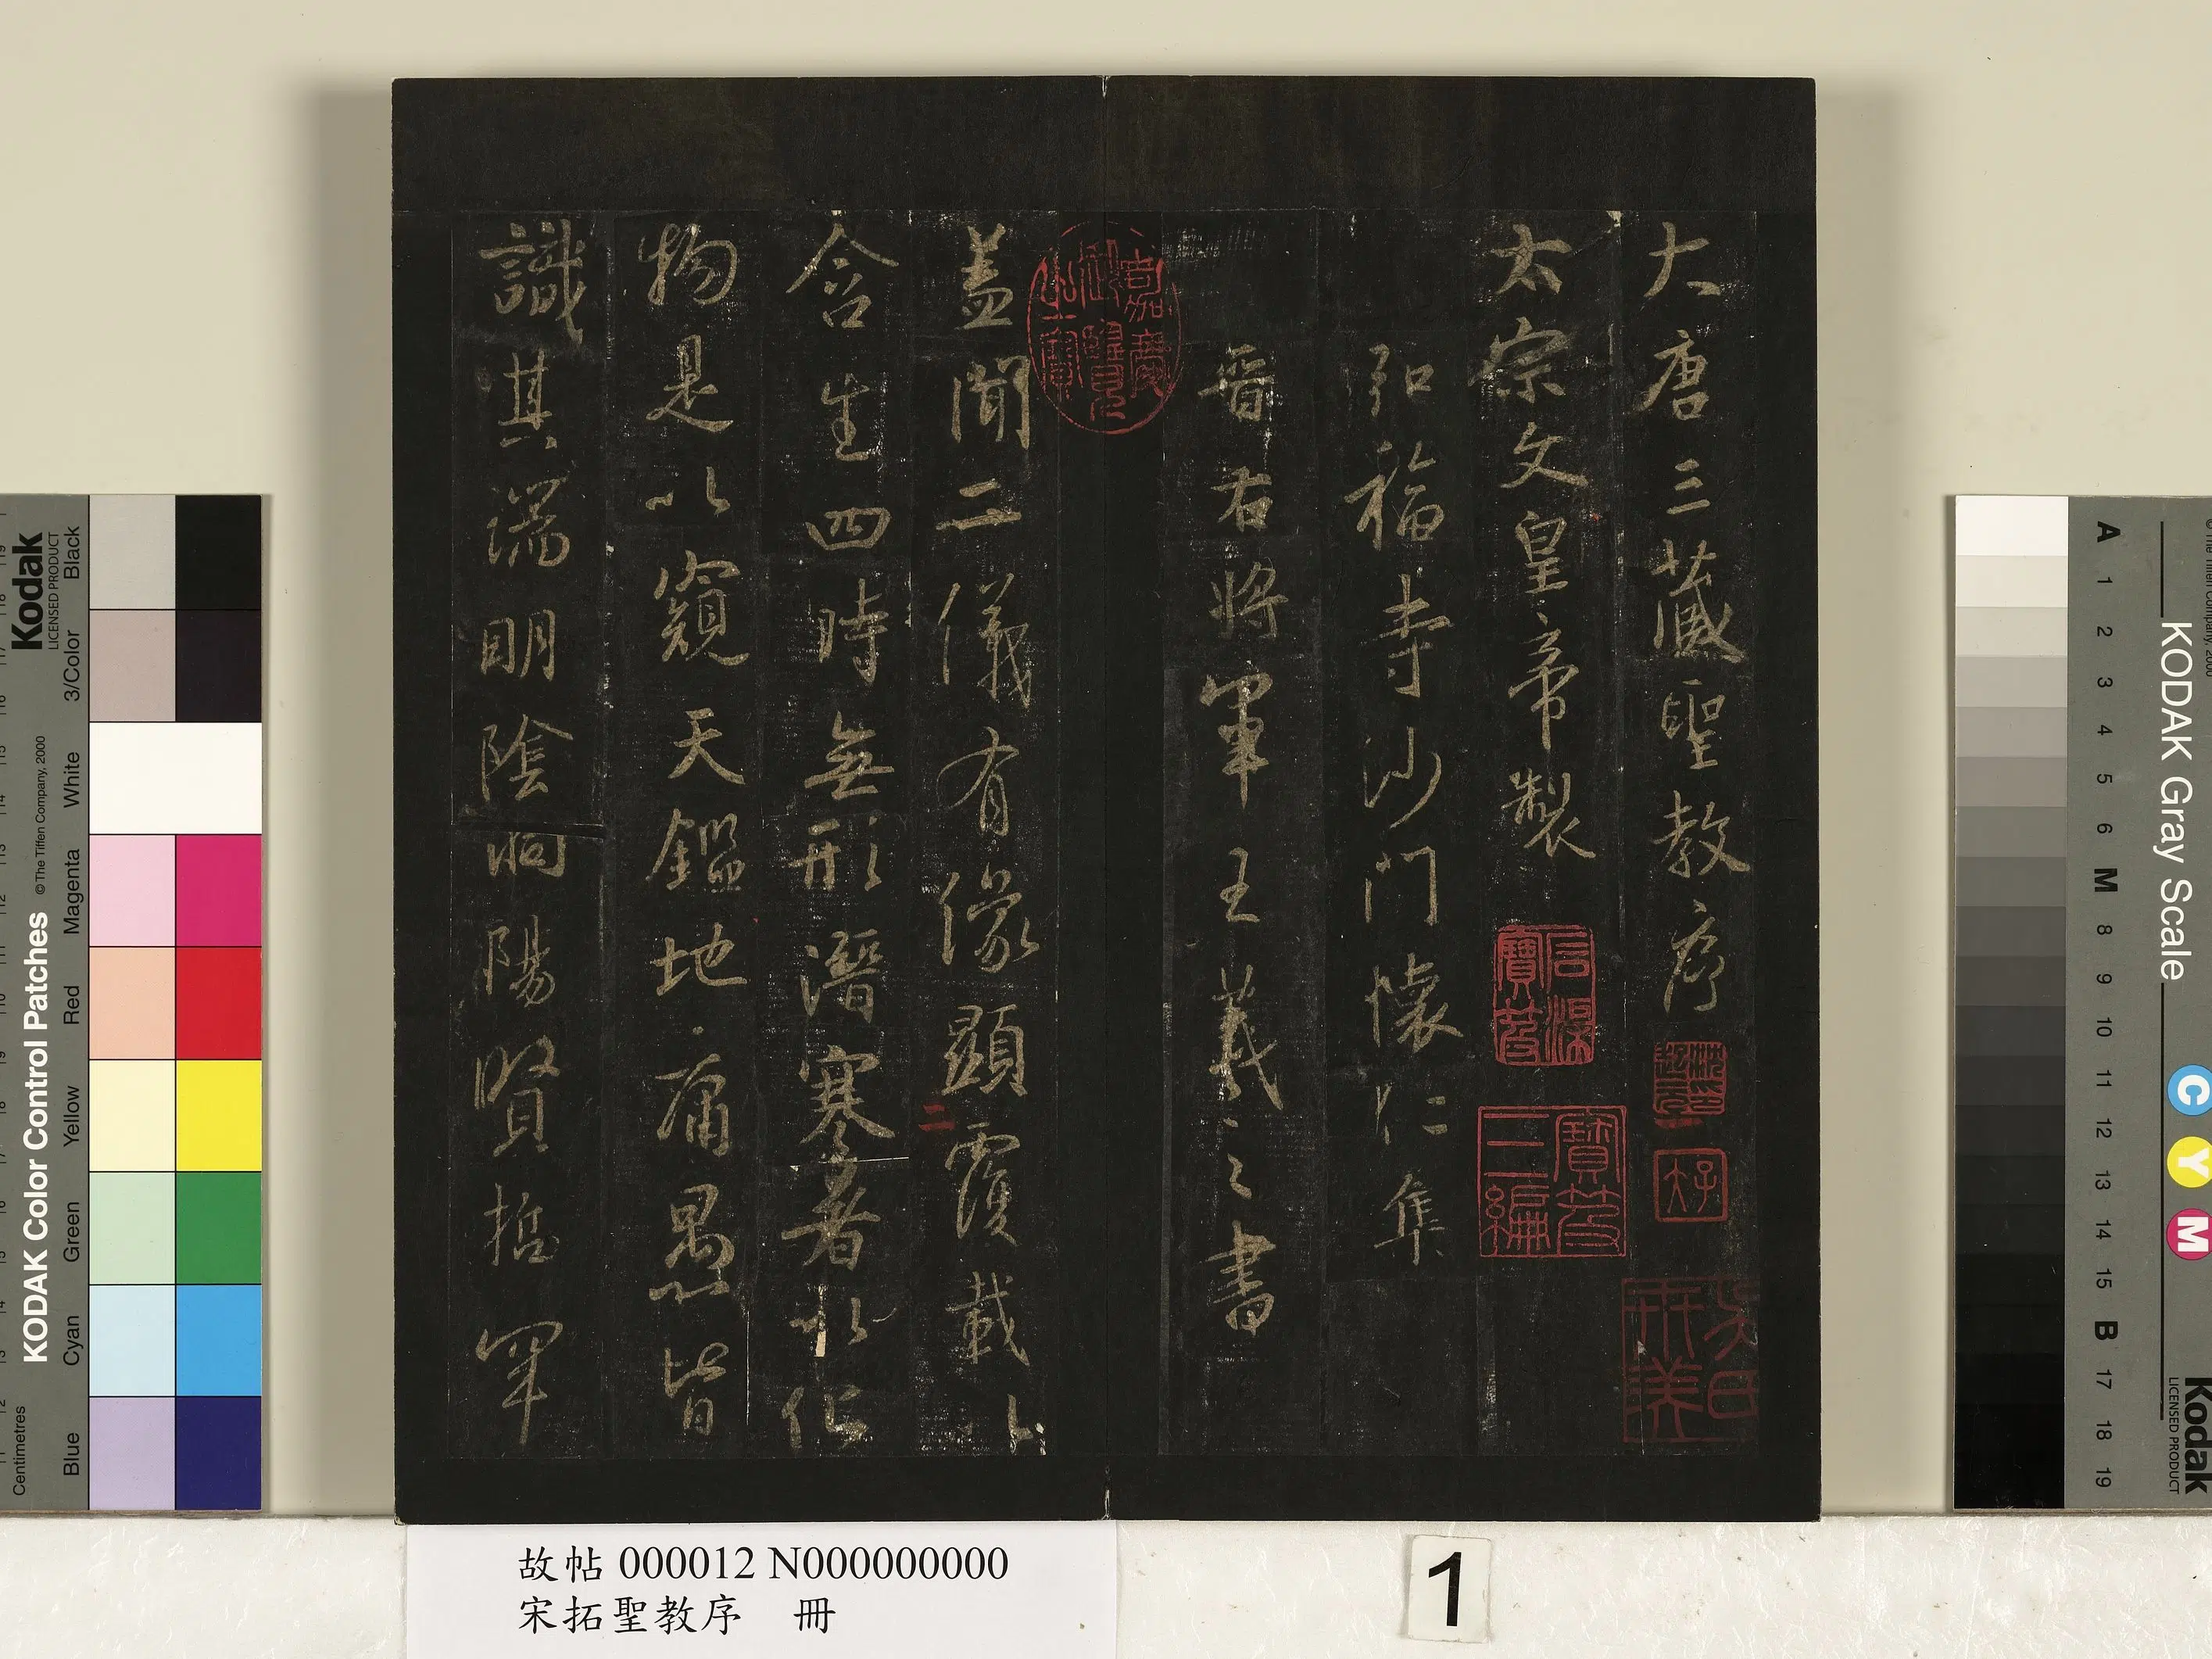 大唐三藏聖教序
太宗文皇帝製
弘福寺沙門懷仁集
晉右將軍王羲之書
蓋聞二儀有像顯覆載以
含生四時無形潛寒暑以化
物是以窺天鑑地庸愚皆
識其端明陰洞陽賢哲罕
嘉慶御覽之寶
石渠寶笈
寶笈三編
二
故帖 000012 N000000000
宋拓聖教序 冊
1
KODAK Color Control Patches
© The Tiffen Company, 2000
Kodak
LICENSED PRODUCT
Centimetres
Blue
Cyan
Green
Yellow
Red
Magenta
White
3/Color
Black
KODAK Gray Scale
Kodak
LICENSED PRODUCT
C
Y
M
A
1
2
3
4
5
6
M
8
9
10
11
12
13
14
15
B
17
18
19